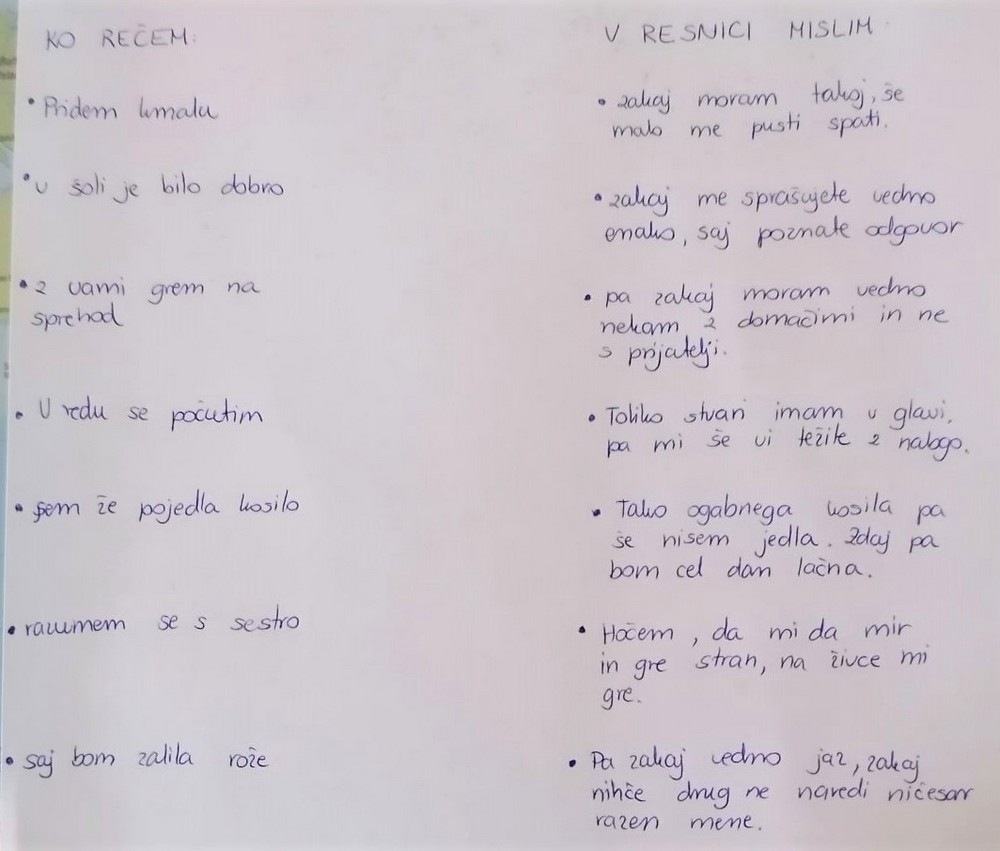 KO REČEM:
• Pridem kmalu
• v šoli je bilo dobro
• z vami grem na
sprehod
• V redu se počutim
• sem že pojedla kosilo
• razumem se s sestro
• saj bom zalila rože
V RESNICI MISLIM
• zakaj moram takoj, še
malo me pusti spati.
• zakaj me sprašujete vedno
enako, saj poznate odgovor
• pa zakaj moram vedno
nekam z domačimi in ne
s prijatelji.
• Toliko stvari imam v glavi,
pa mi še vi težite z nalogo.
• Tako ogabnega kosila pa
še nisem jedla. Zdaj pa
bom cel dan lačna.
• Hočem, da mi da mir
in gre stran, na živce mi
gre.
• Pa zakaj vedno jaz, zakaj
nihče drug ne naredi ničesar
razen mene.